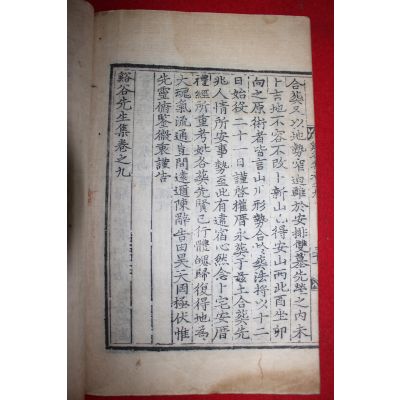 合葬又以地勢窄迫難於安排雙墓先塋之內未
卜吉地不容不改卜新山已得安山丙此酉坐卯
向之原術者皆言山川形勢合以葬法將以十二
日始役二十一日謹啓攢厝永葬于玆土合葬先
兆人情所安事勢至此有違宿心然念卜宅安厝
禮經所重考妣各葬先賢已行體魄歸復得地為
大魂氣流通豈間遠邇陳辭告由昊天罔極伏惟
先靈俯鑒微衷謹告
谿谷先生集卷之九